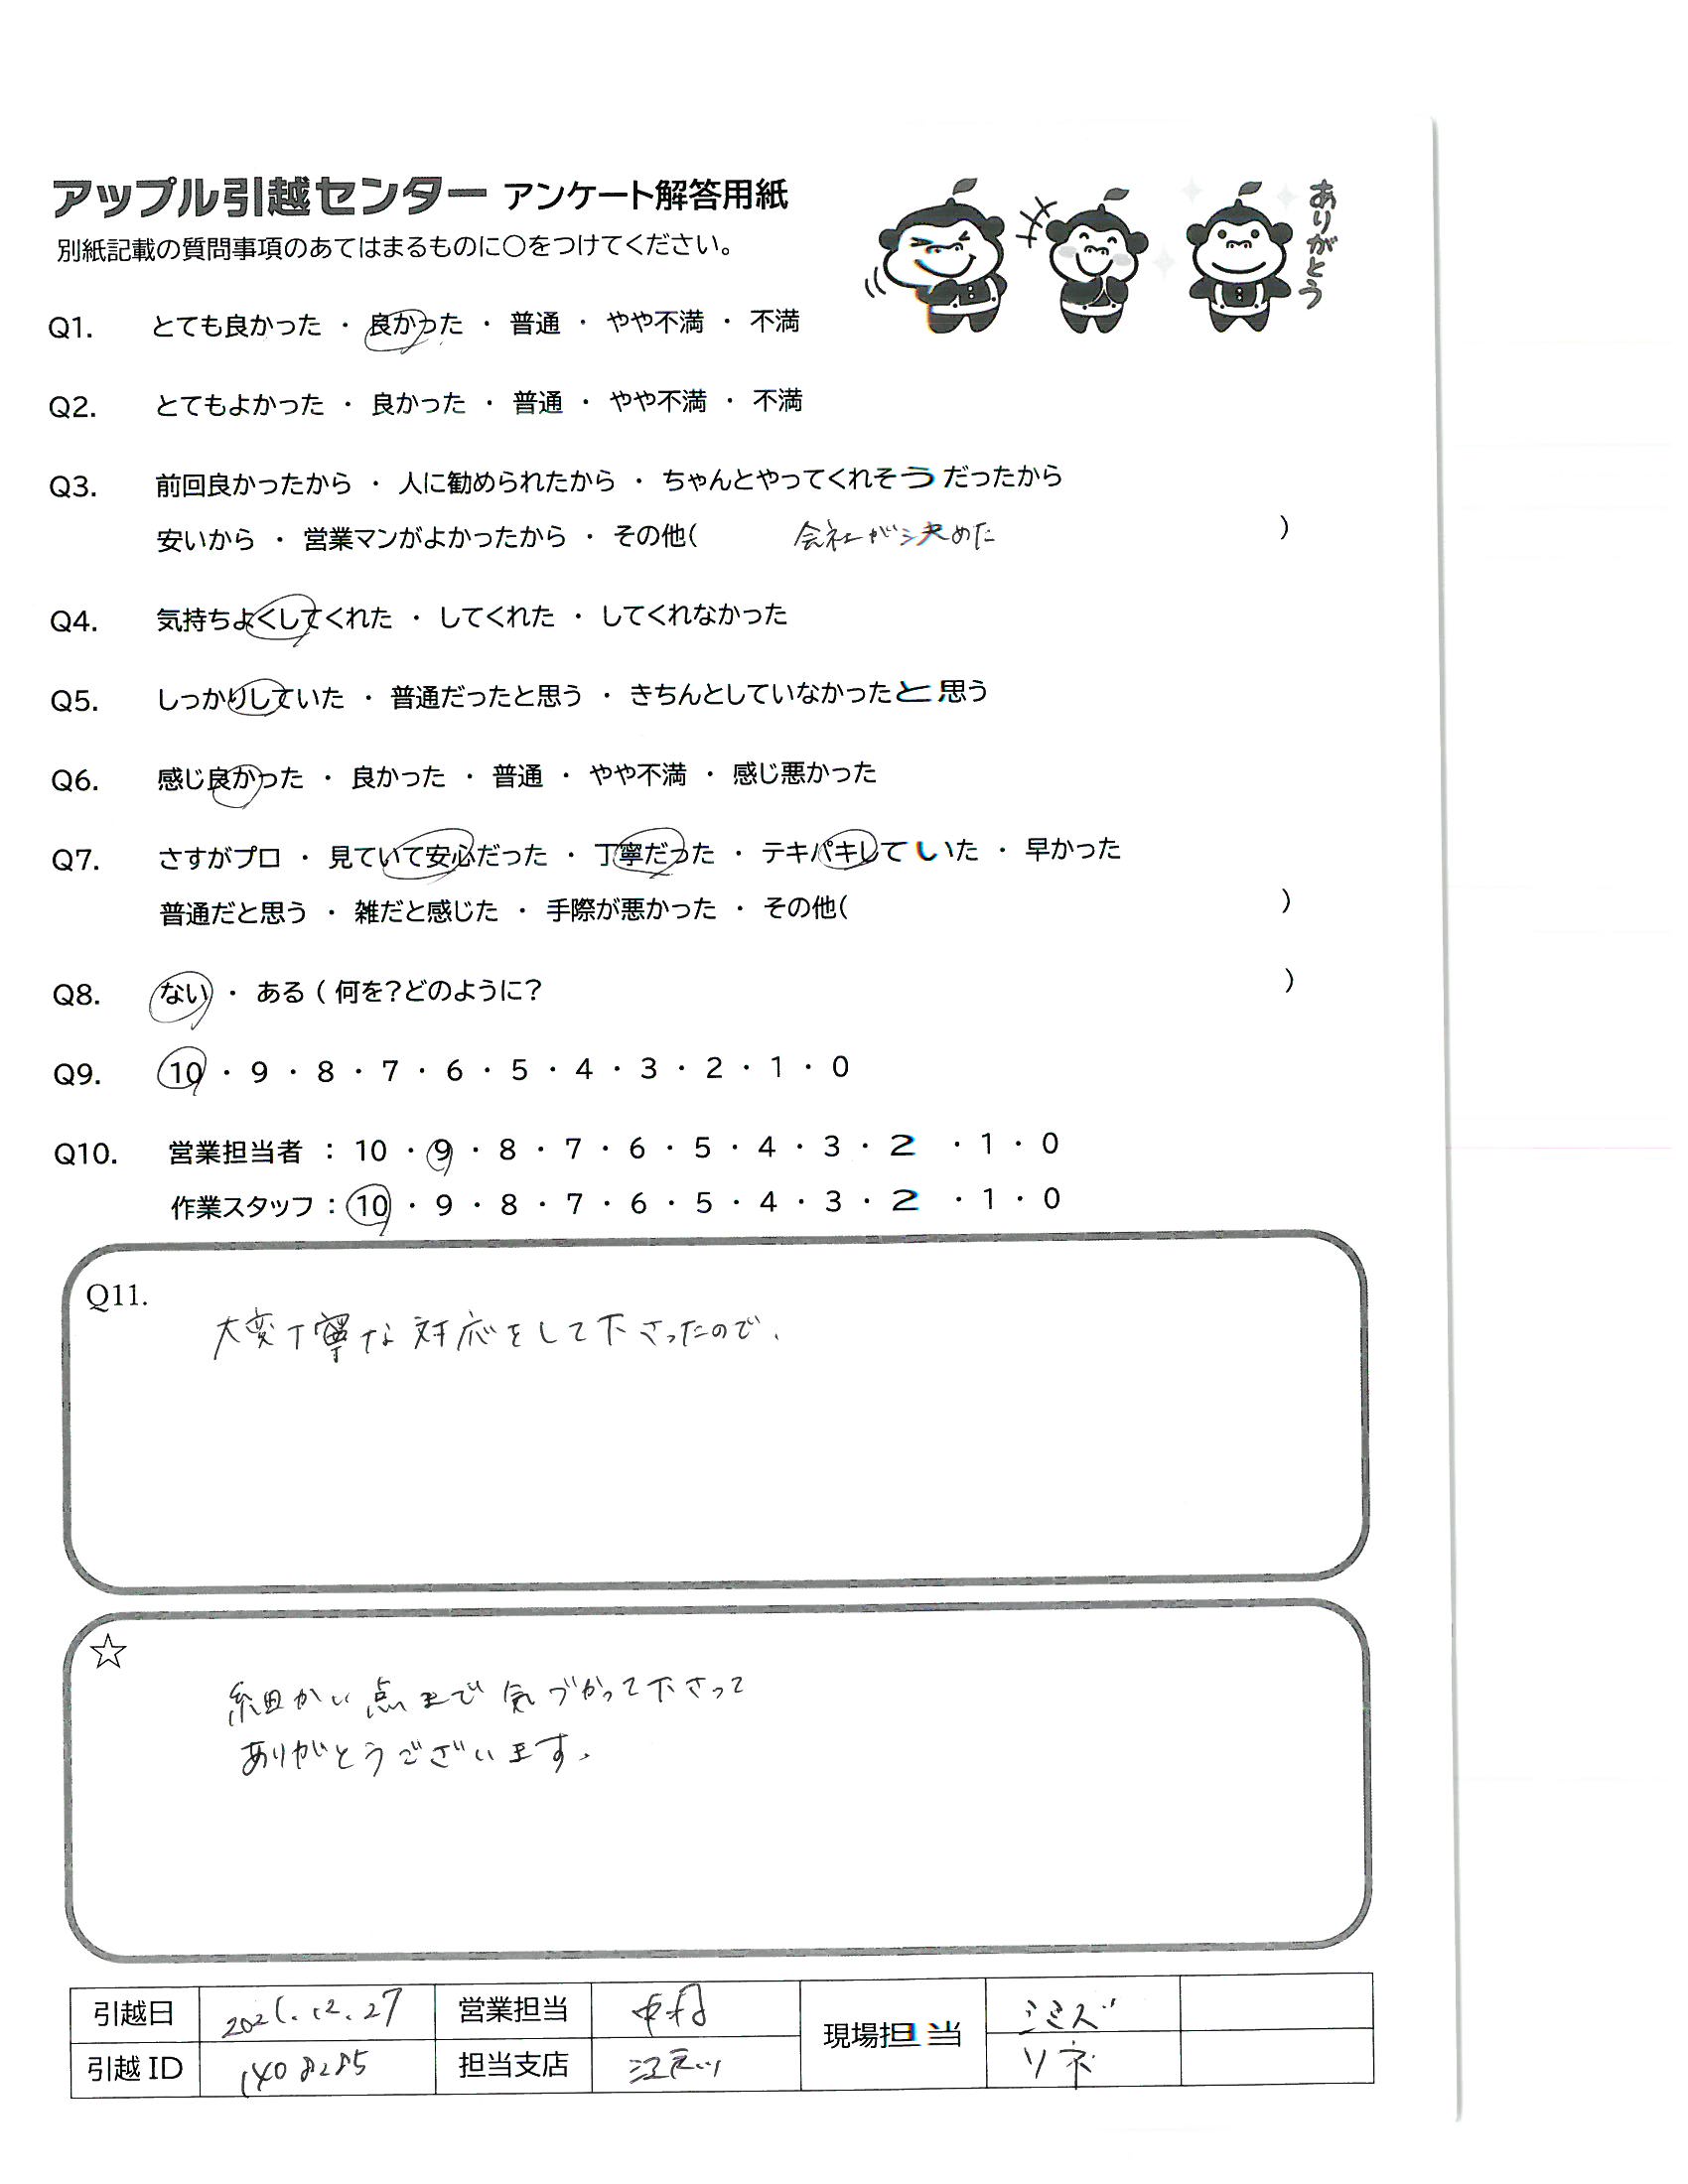 アップル引越センター アンケート解答用紙
ありがとう
別紙記載の質問事項のあてはまるものに〇をつけてください。
Q1. とても良かった ・ 良かった ・ 普通 ・ やや不満 ・ 不満
Q2. とてもよかった ・ 良かった ・ 普通 ・ やや不満 ・ 不満
Q3. 前回良かったから ・ 人に勧められたから ・ ちゃんとやってくれそうだったから
安いから ・ 営業マンがよかったから ・ その他( 会社が決めた )
Q4. 気持ちよくしてくれた ・ してくれた ・ してくれなかった
Q5. しっかりしていた ・ 普通だったと思う ・ きちんとしていなかったと思う
Q6. 感じ良かった ・ 良かった ・ 普通 ・ やや不満 ・ 感じ悪かった
Q7. さすがプロ ・ 見ていて安心だった ・ 丁寧だった ・ テキパキしていた ・ 早かった
普通だと思う ・ 雑だと感じた ・ 手際が悪かった ・ その他( )
Q8. ない ・ ある ( 何を?どのように? )
Q9. 10 ・ 9 ・ 8 ・ 7 ・ 6 ・ 5 ・ 4 ・ 3 ・ 2 ・ 1 ・ 0
Q10. 営業担当者 : 10 ・ 9 ・ 8 ・ 7 ・ 6 ・ 5 ・ 4 ・ 3 ・ 2 ・ 1 ・ 0
作業スタッフ : 10 ・ 9 ・ 8 ・ 7 ・ 6 ・ 5 ・ 4 ・ 3 ・ 2 ・ 1 ・ 0
Q11.
大変丁寧な対応をして下さったので、
☆
細かい点まで気づかって下さって
ありがとうございます。
引越日 2021.12.27 営業担当 中村 現場担当 シミズ
引越ID 1408285 担当支店 江戸川 ソネ